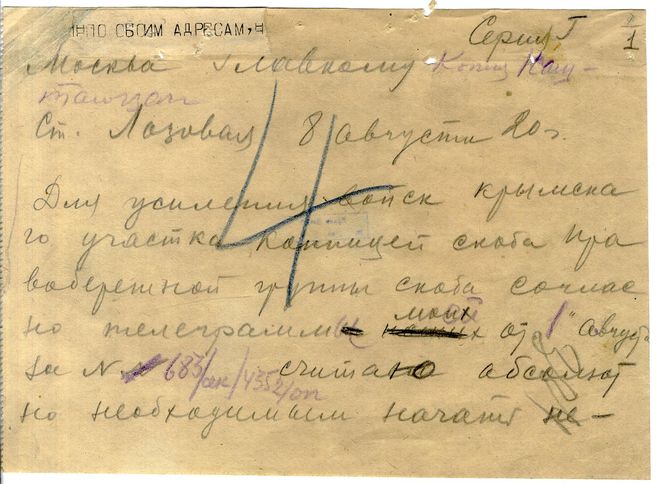 НПО СВОИМ АДРЕСАМ,
Серия Г 1
Москва Главному Копия Наш-
таюзап
Ст. Лозовая 8 августа 20 г.
4
Для усиления войск крымска
го участка конницей скоба пра
вобережной группы скоба соглас
но телеграммы моих от 1" августа
за N 683/сек/4352/оп считаю абсолют
но необходимым начать не-